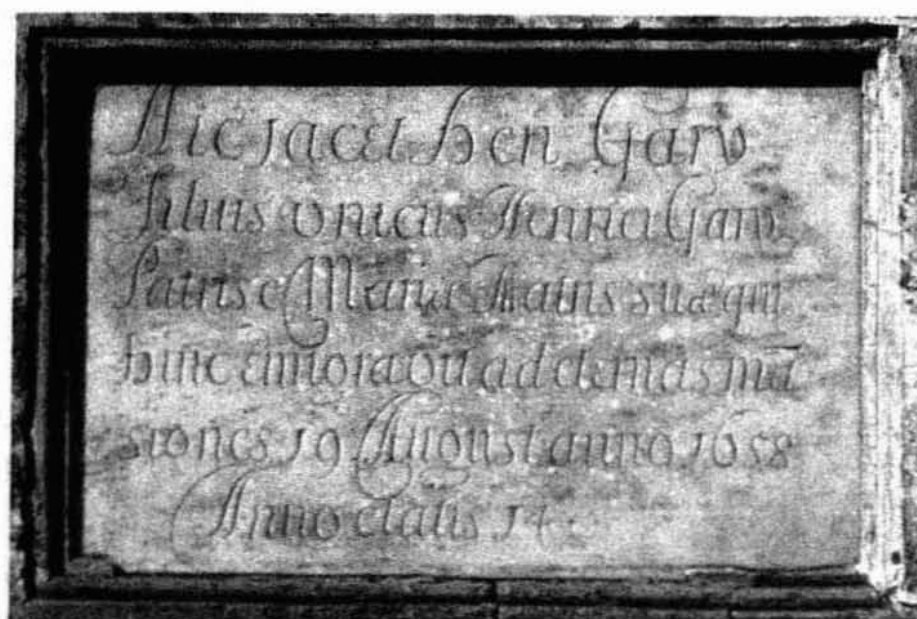 Hic jacet Hen Gary
filius vnicus Henrici Gary
Patris e Mariæ Matris suæ qui
hinc emigravit ad æternas mā
siones 19 August anno 1658
Anno etatis 14